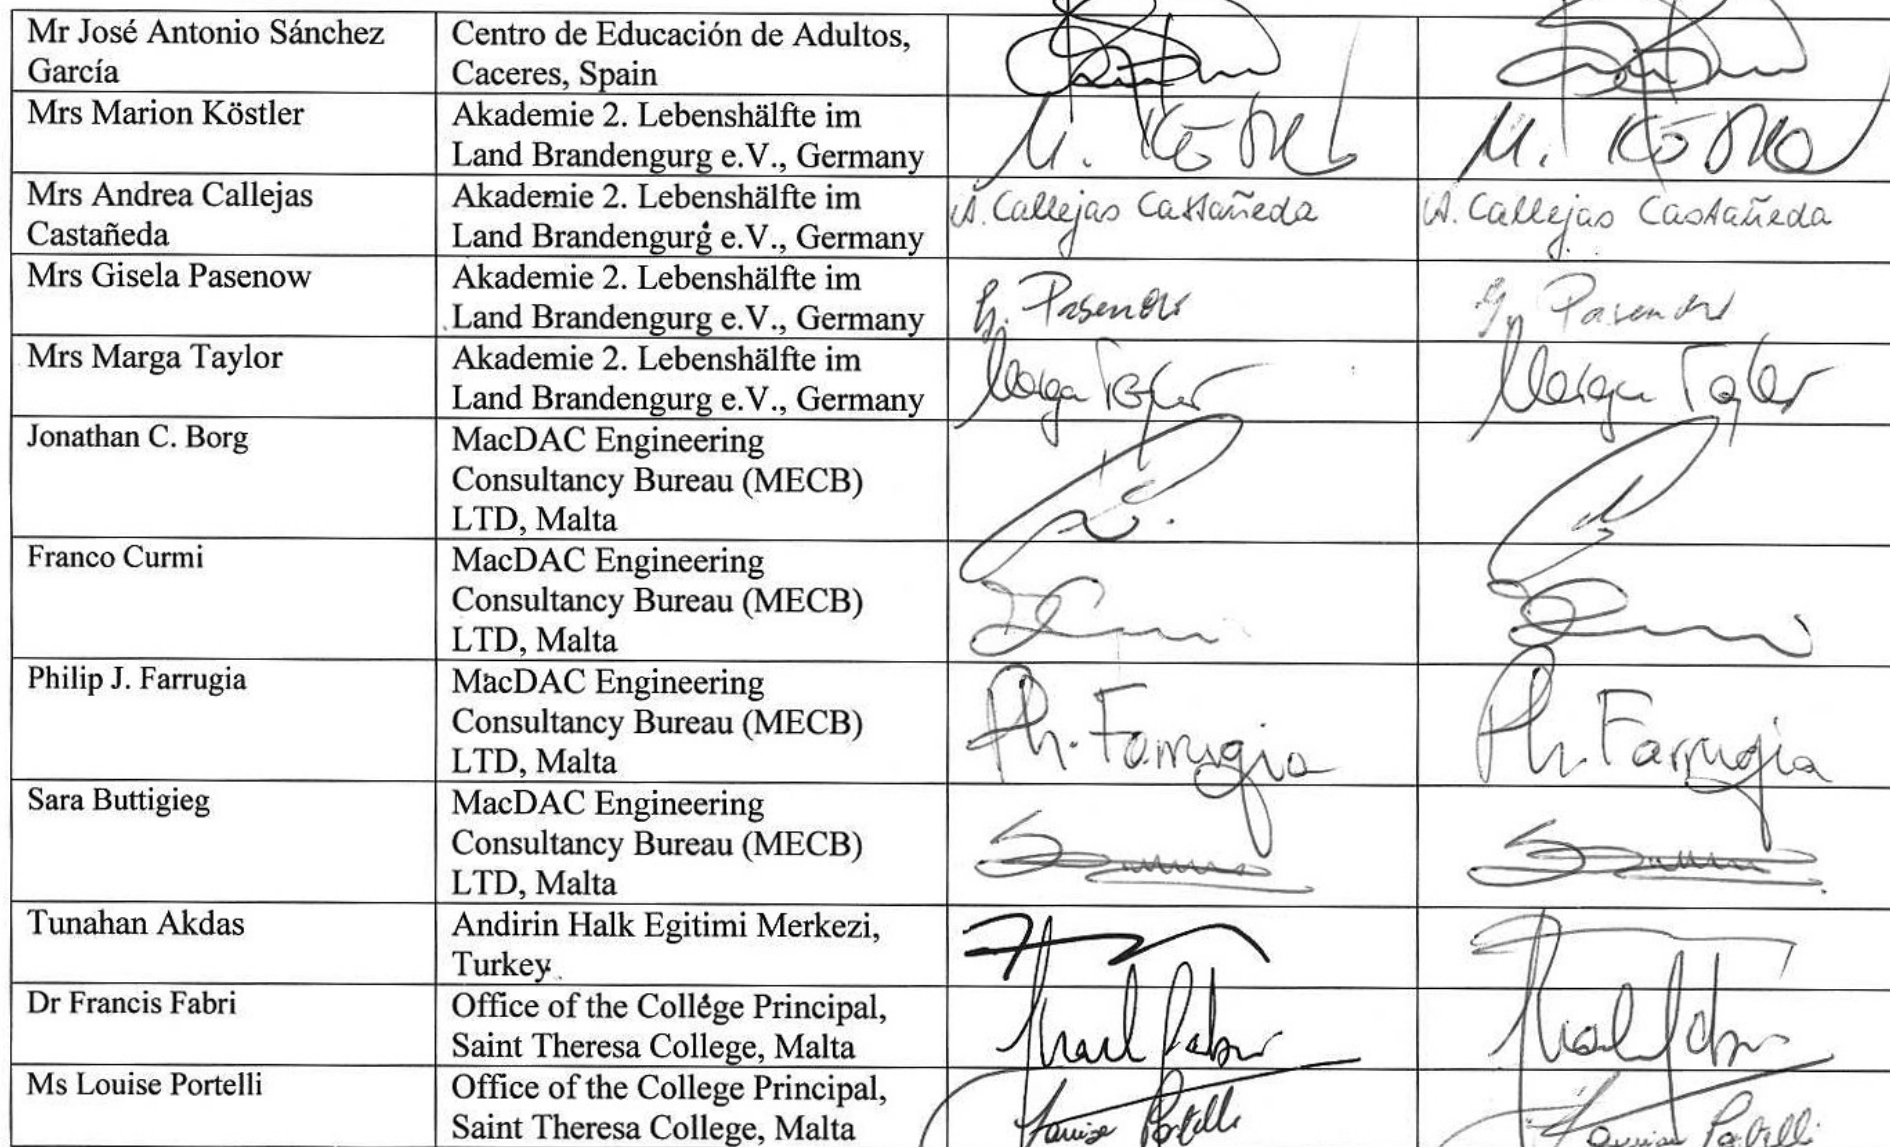 Mr José Antonio Sánchez García
Centro de Educación de Adultos, Caceres, Spain
Mrs Marion Köstler
Akademie 2. Lebenshälfte im
Land Brandengurg e.V., Germany
M. Köstler
M. Köstler
Mrs Andrea Callejas
Castañeda
Akademie 2. Lebenshälfte im
Land Brandengurg e.V., Germany
A. Callejas Castañeda
A. Callejas Castañeda
Mrs Gisela Pasenow
Akademie 2. Lebenshälfte im
Land Brandengurg e.V., Germany
G. Pasenow
G. Pasenow
Mrs Marga Taylor
Akademie 2. Lebenshälfte im
Land Brandengurg e.V., Germany
Marga Taylor
Marga Taylor
Jonathan C. Borg
MacDAC Engineering
Consultancy Bureau (MECB)
LTD, Malta
Franco Curmi
MacDAC Engineering
Consultancy Bureau (MECB)
LTD, Malta
Philip J. Farrugia
MacDAC Engineering
Consultancy Bureau (MECB)
LTD, Malta
Ph. Farrugia
Ph. Farrugia
Sara Buttigieg
MacDAC Engineering
Consultancy Bureau (MECB)
LTD, Malta
Tunahan Akdas
Andirin Halk Egitimi Merkezi,
Turkey
Dr Francis Fabri
Office of the College Principal,
Saint Theresa College, Malta
Ms Louise Portelli
Office of the College Principal,
Saint Theresa College, Malta
Louise Portelli
Louise Portelli